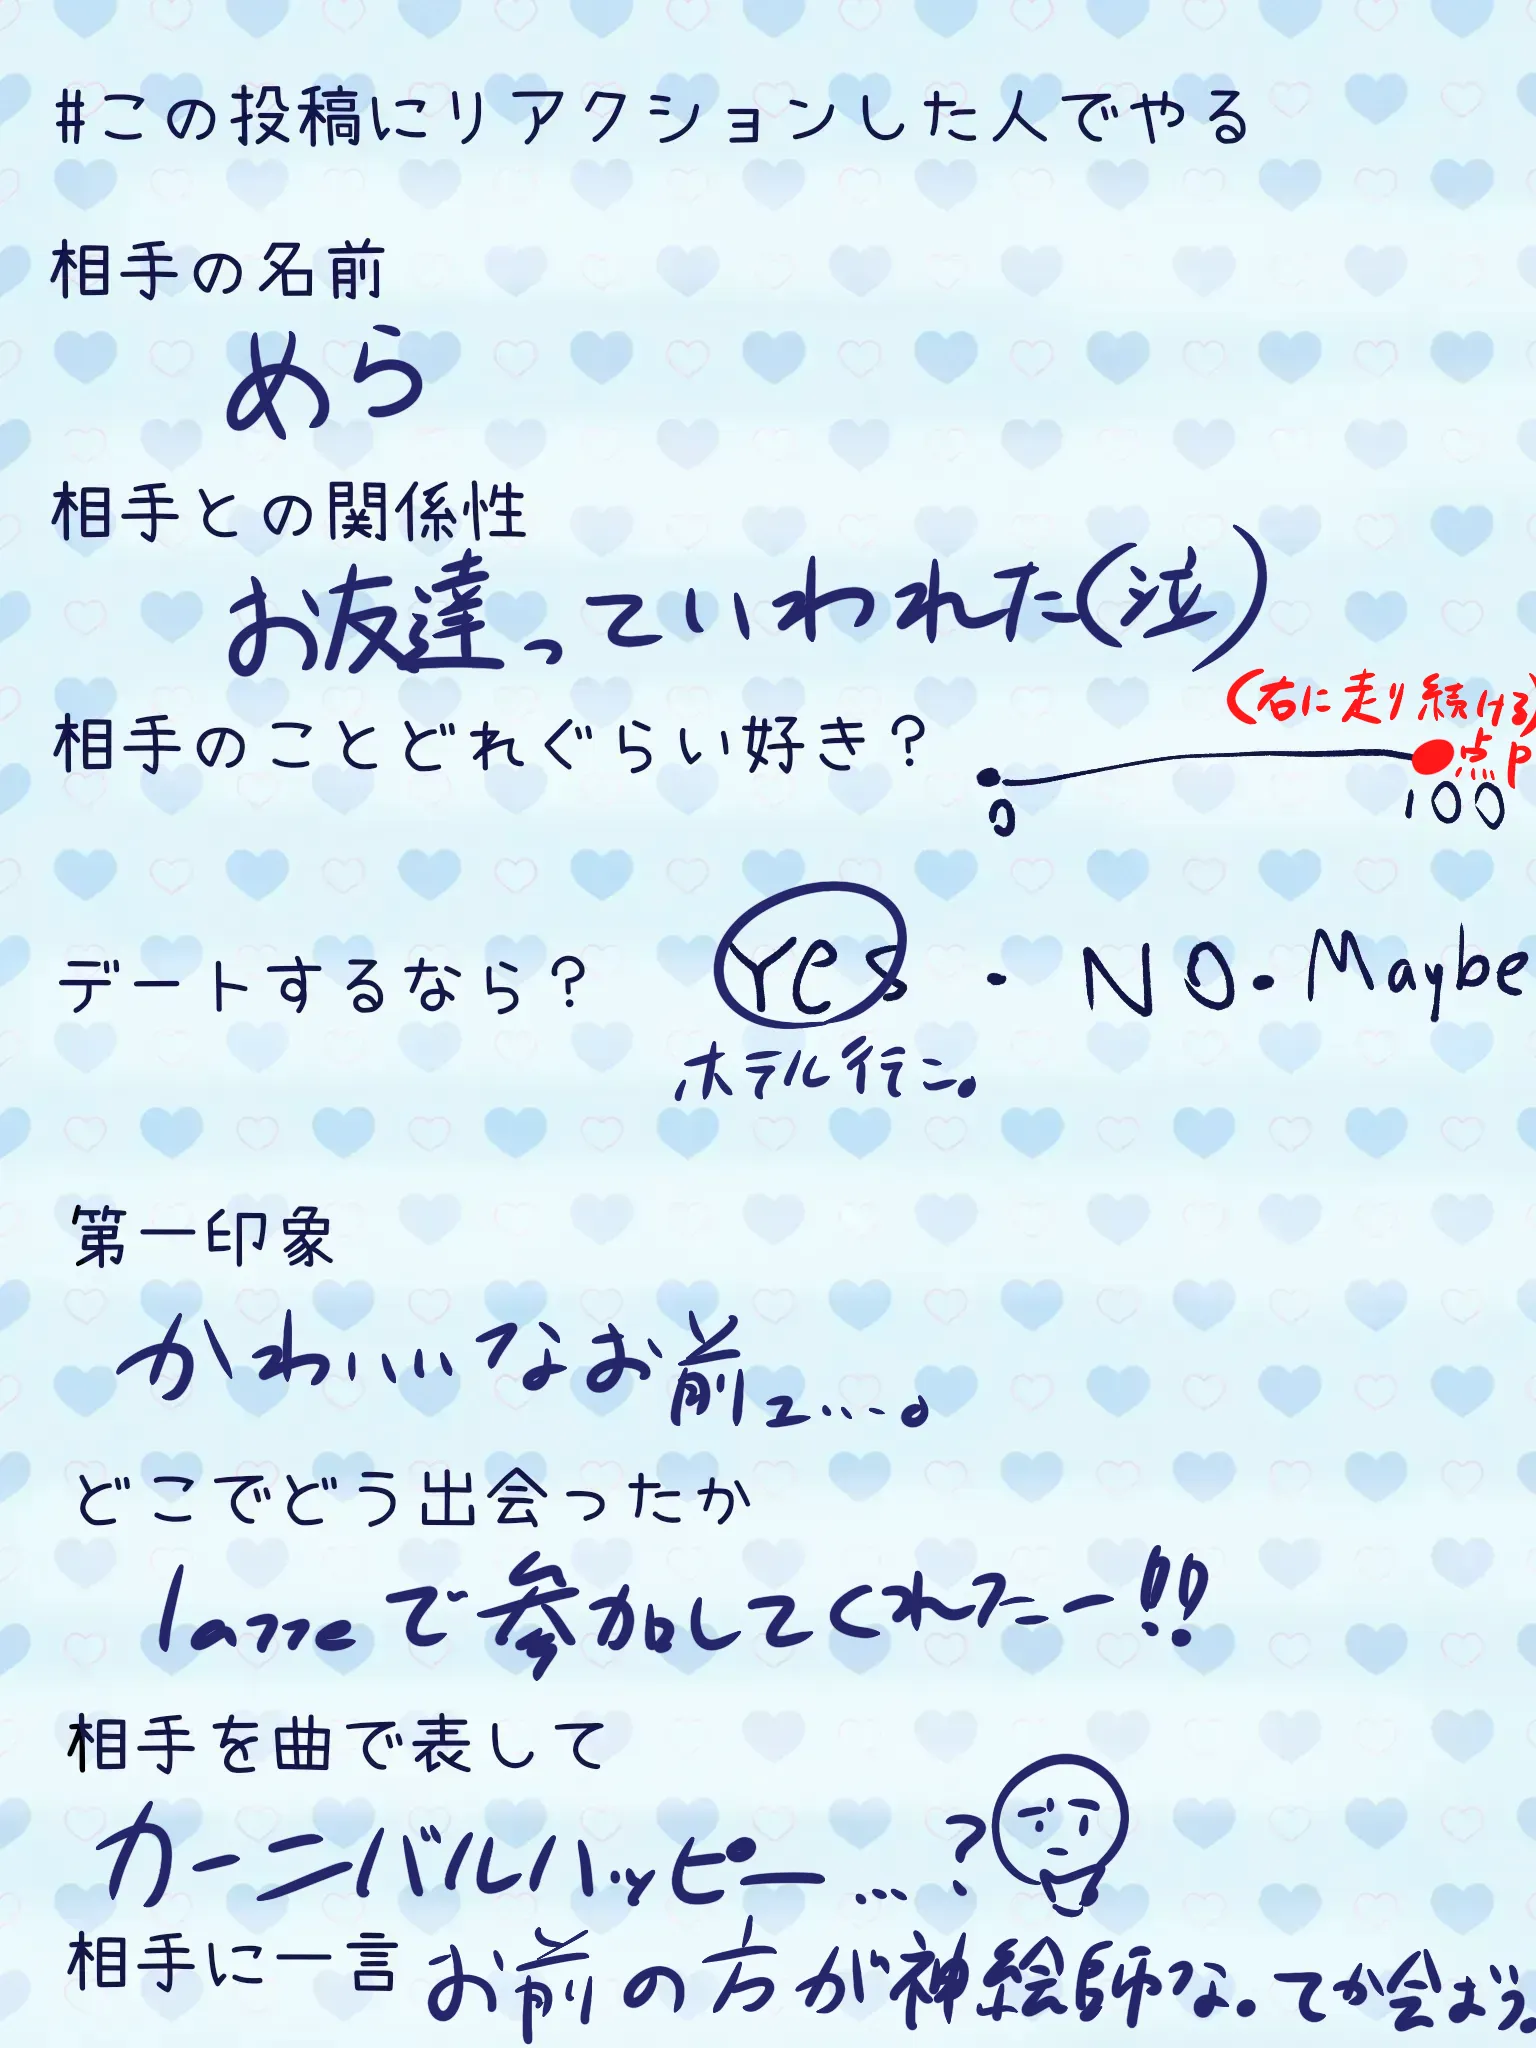 #この投稿にリアクションした人でやる
相手の名前
めら
相手との関係性
お友達っていわれた(泣)
(右に走り続ける)
相手のことどれぐらい好き？
点P
0 100
デートするなら？ Yes・NO・Maybe
ホテル行こ。
第一印象
かわいいなお前ェ…。
どこでどう出会ったか
で参加してくれたー!!
相手を曲で表して
カーニバルハッピー…?
相手に一言 お前の方が神絵師な。てか会おう。